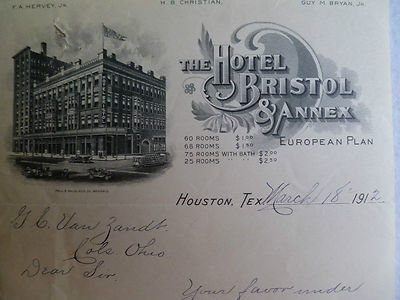 F. A. HERVEY, JR.
H. B. CHRISTIAN,
GUY M. BRYAN, JR.
THE HOTEL
BRISTOL
& ANNEX
60 ROOMS $1.00
68 ROOMS $1.50
75 ROOMS WITH BATH $2.00
25 ROOMS " " $2.50
EUROPEAN PLAN
HOUSTON, TEX. March 18 1912
G. C. Van Zandt.
Cols. Ohio
Dear Sir.
Your favor under